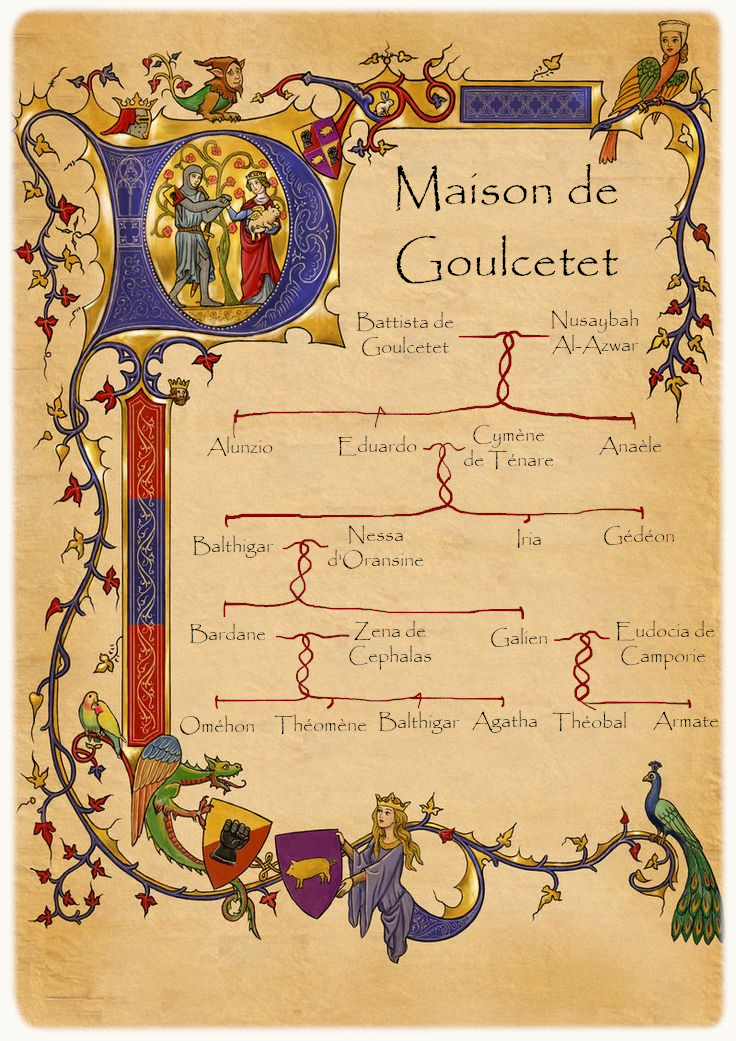 Maison de
Goulcetet
Battista de
Goulcetet
Nusaybah
Al-Azwar
Alunzio
Eduardo
Cymène
de Ténare
Anaèle
Balthigar
Nessa
d'Oransine
Iria
Gédéon
Bardane
Zena de
Cephalas
Galien
Eudocia de
Camporie
Oméhon
Théomène
Balthigar
Agatha
Théobal
Armate